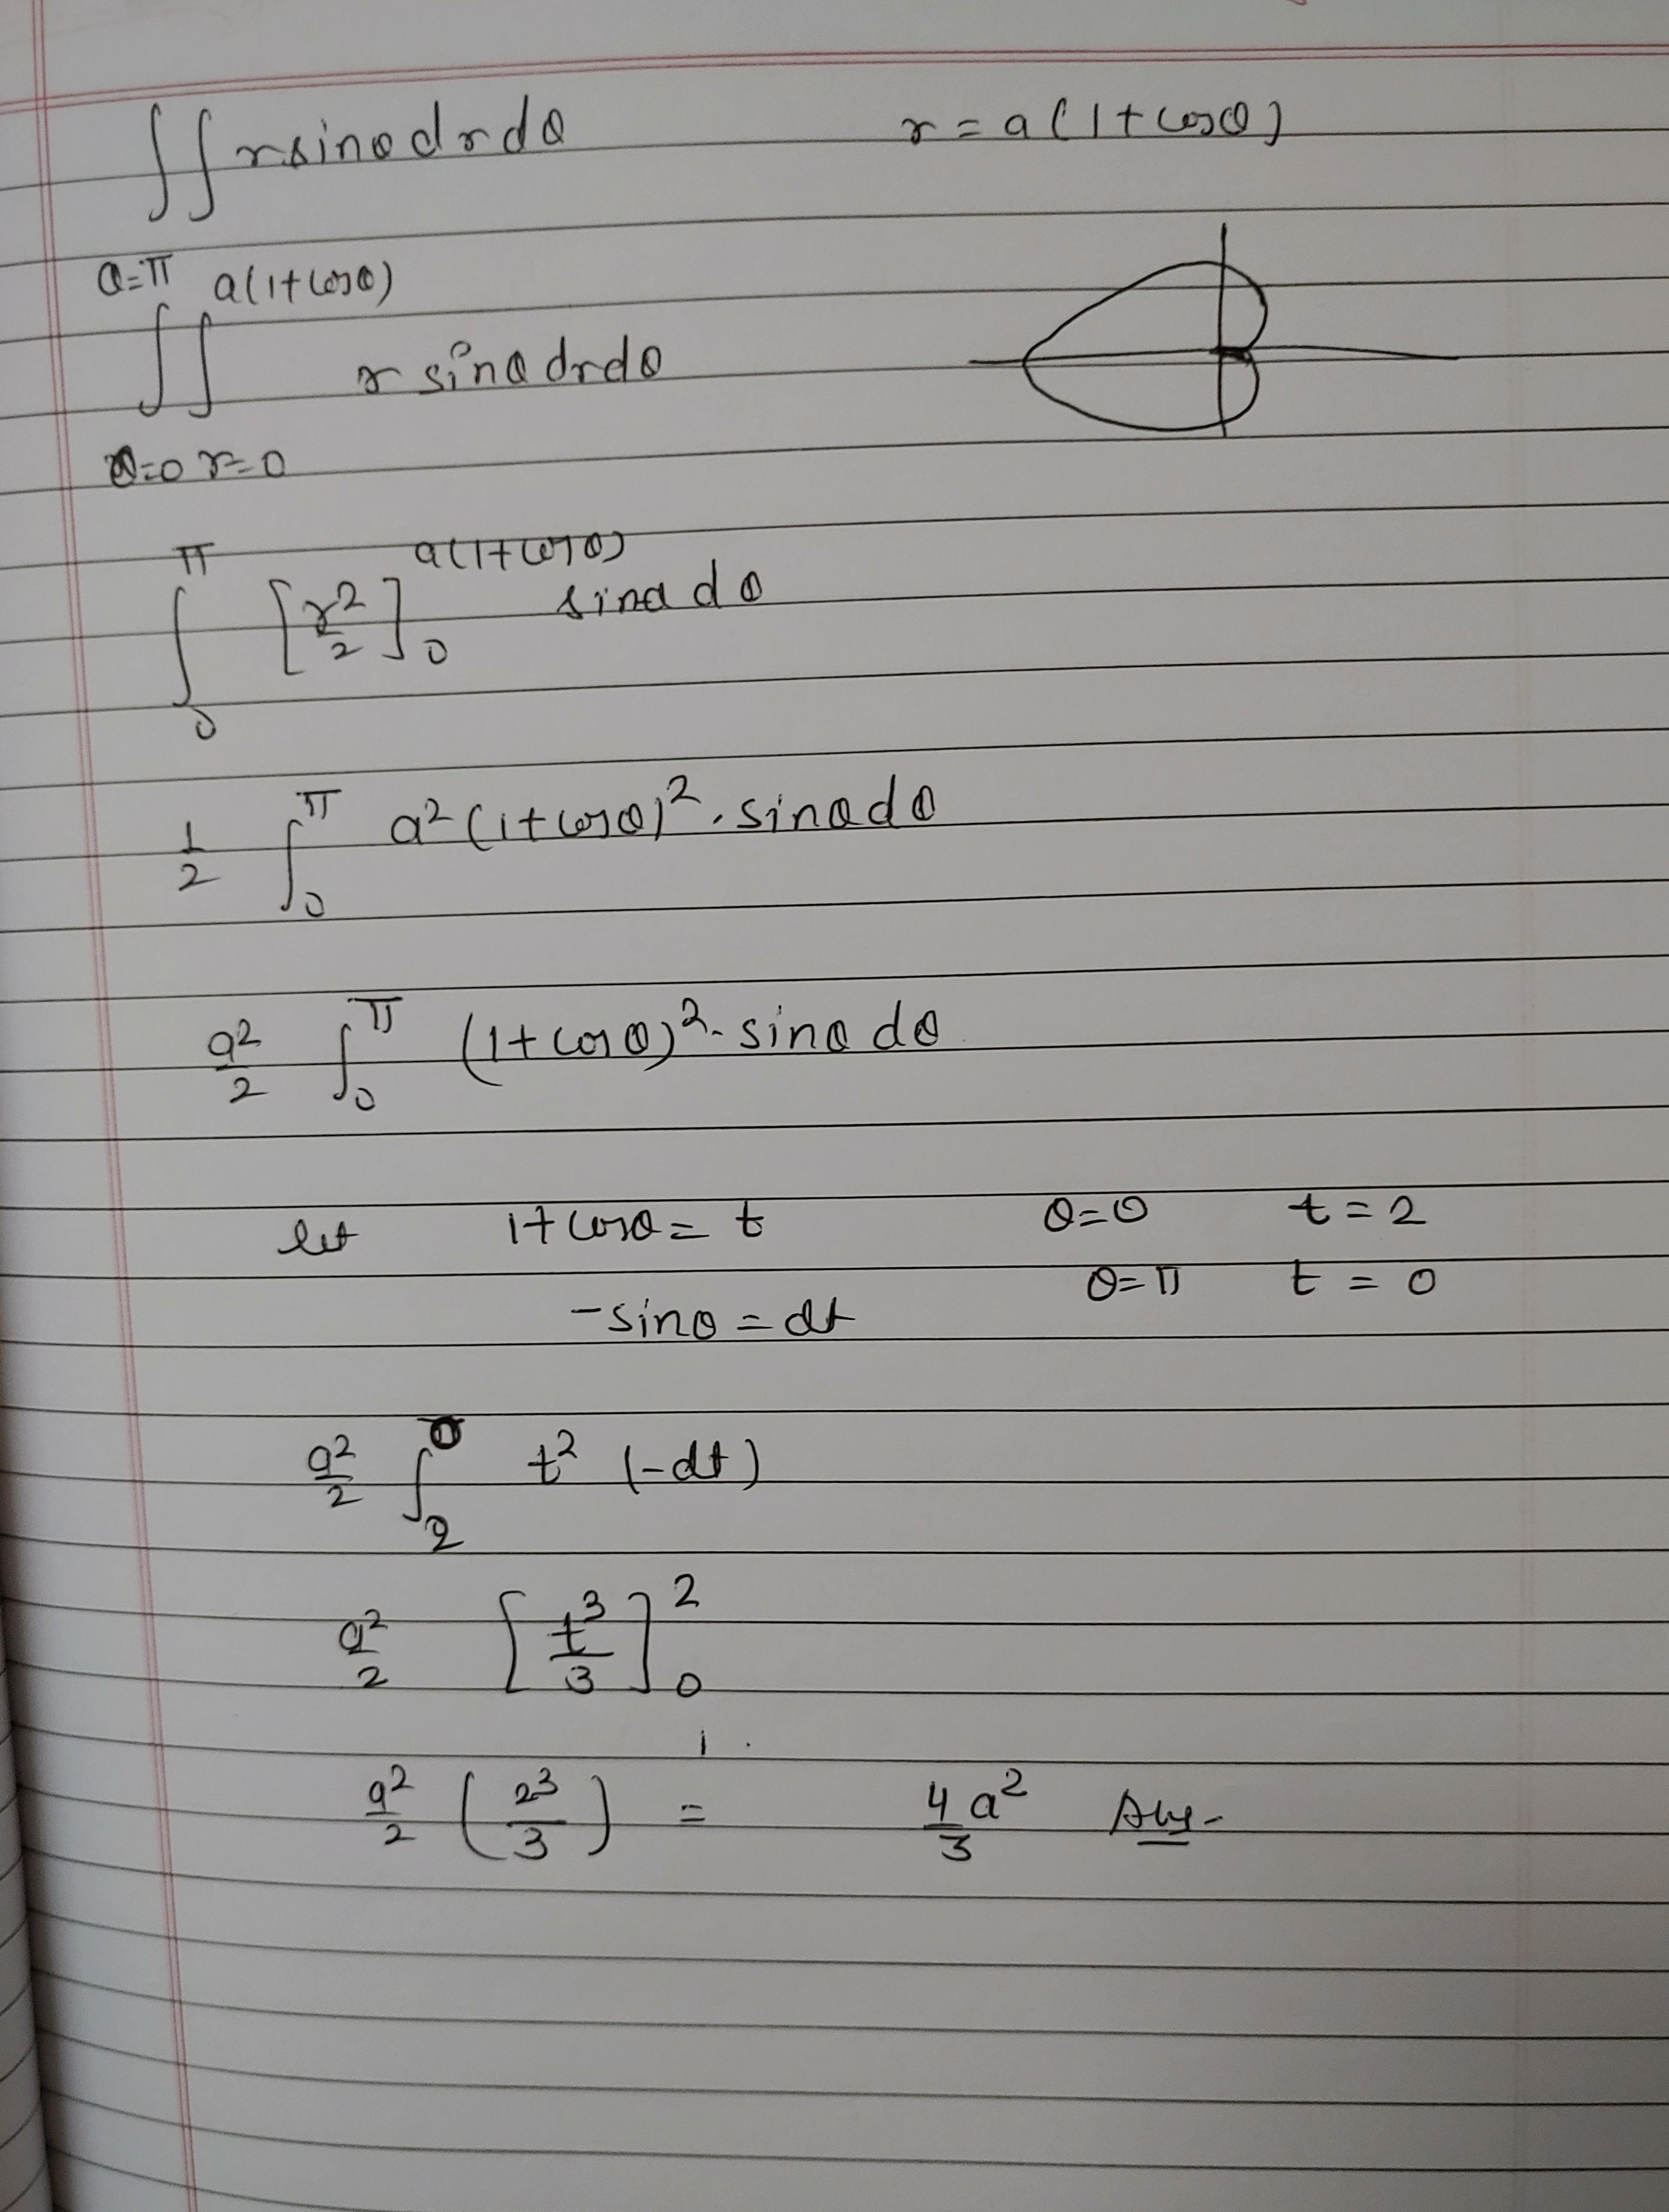 ∫∫ r sinθ dr dθ    r = a(1+cosθ)
θ=π a(1+cosθ)
∫∫ r sinθ dr dθ
θ=0 r=0
∫₀^π [r²/2]₀^{a(1+cosθ)} sinθ dθ
1/2 ∫₀^π a²(1+cosθ)² . sinθ dθ
a²/2 ∫₀^π (1+cosθ)² . sinθ dθ
let 1+cosθ = t    θ=0    t = 2
-sinθ = dt    θ=π    t = 0
a²/2 ∫₂^0 t² (-dt)
a²/2 [t³/3]₀²
a²/2 (2³/3) = 4/3 a² Ans-